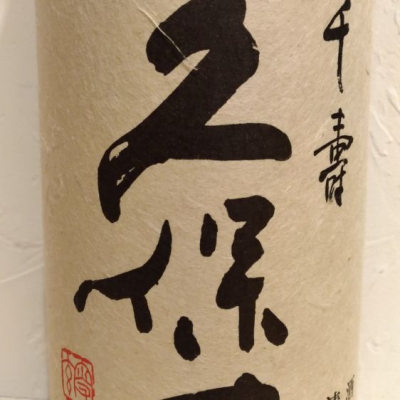 千壽
久保